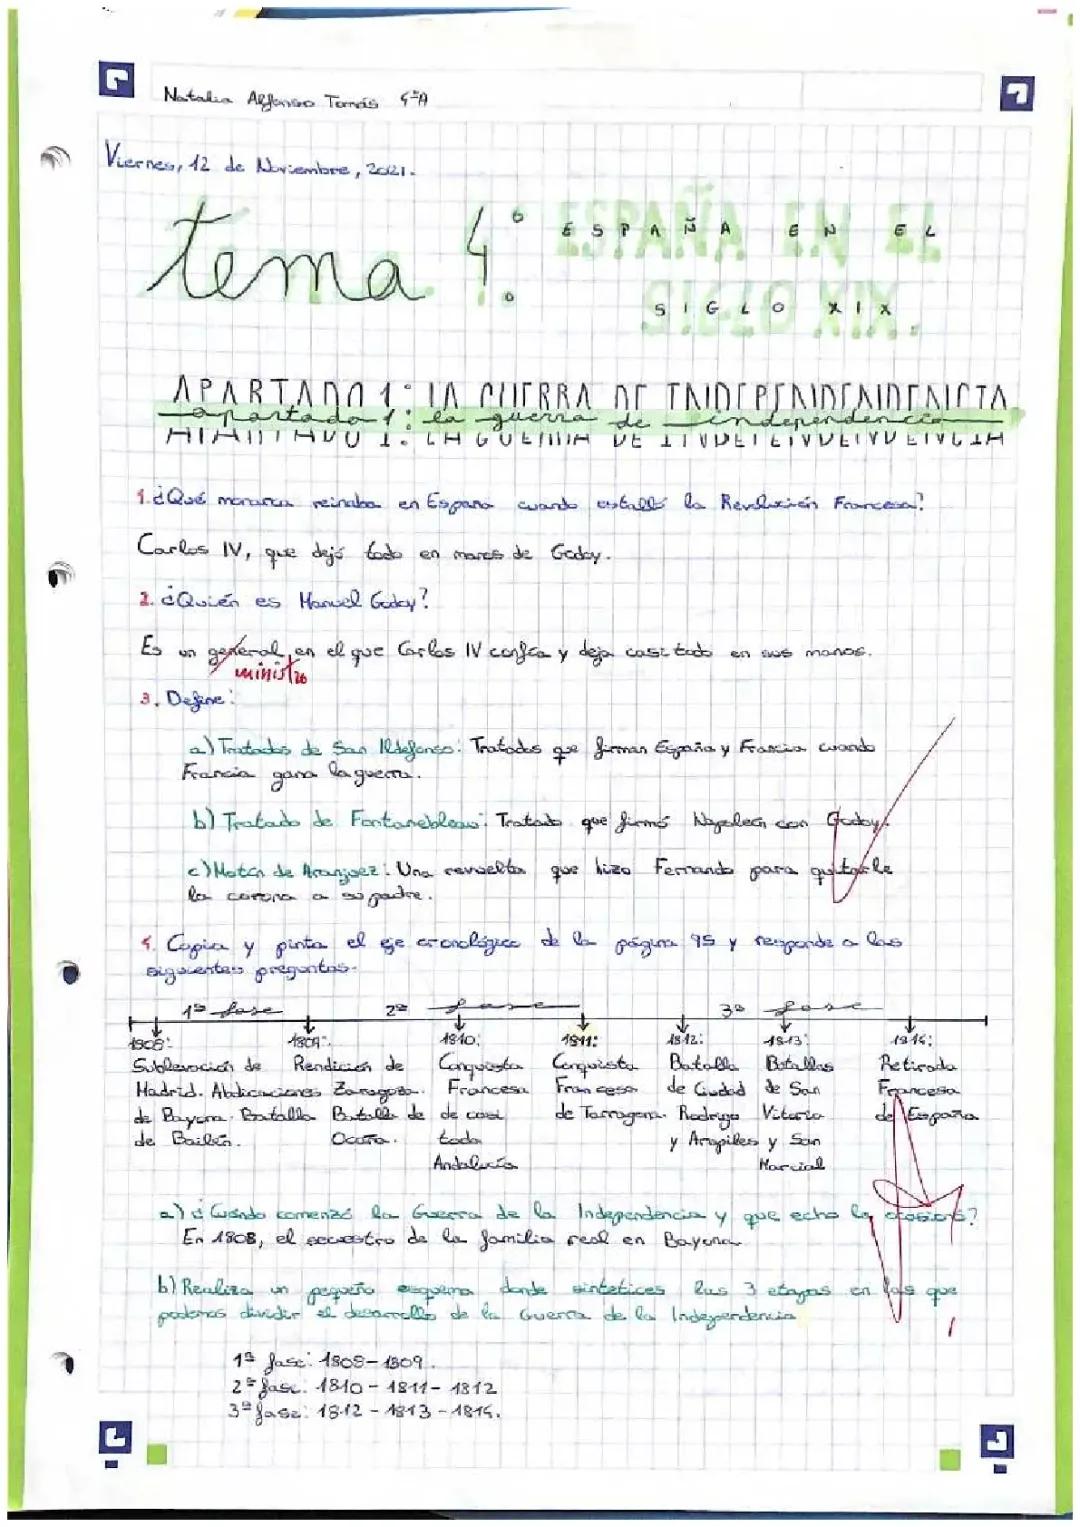 Natalia Alfonso Tomás 4ºA
Viernes, 12 de Noviembre, 2021.
tema 4: ESPAÑA EN EL
SIGLO XIX.
APARTADO 1: LA GUERRA DE INDEPENDENCIA
apartado 1: la guerra de independencia
1. ¿Qué monarca reinaba en España cuando estalló la Revolución Francesa?
Carlos IV, que dejó todo en manos de Godoy.
2. ¿Quién es Manuel Godoy?
Es un general, en el que Carlos IV confía y deja casi todo en sus manos.
ministro
3. Define:
a) Tratados de San Ildefonso: Tratados que firman España y Francia cuando
Francia gana la guerra.
b) Tratado de Fontanebleau: Tratado que firmó Napoleón con Godoy.
c) Motín de Aranjuez: Una revuelta que hizo Fernando para quitarle
la corona a su padre.
4. Copia y pinta el eje cronológico de la página 95 y responde a las
siguientes preguntas.
1ª fase 2ª fase 3ª fase
1808: 1809: 1810: 1811: 1812: 1813: 1814:
Sublevación de Rendición de Conquista Conquista Batalla Batallas Retirada
Madrid. Abdicaciones Zaragoza. Francesa Francesa de Ciudad de San Francesa
de Bayona. Batalla Batalla de de casi de Tarragona. Rodrigo Vitoria de España
de Bailén. Ocaña. toda y Arapiles y San
Andalucía Marcial
a) ¿Cuándo comenzó la Guerra de la Independencia y que echo la ocasionó?
En 1808, el secuestro de la familia real en Bayona.
b) Realiza un pequeño esquema donde sintetices las 3 etapas en las que
podemos dividir el desarrollo de la Guerra de la Independencia
1ª fase: 1808-1809.
2ª fase: 1810-1811-1812
3ª fase: 1812-1813-1814.